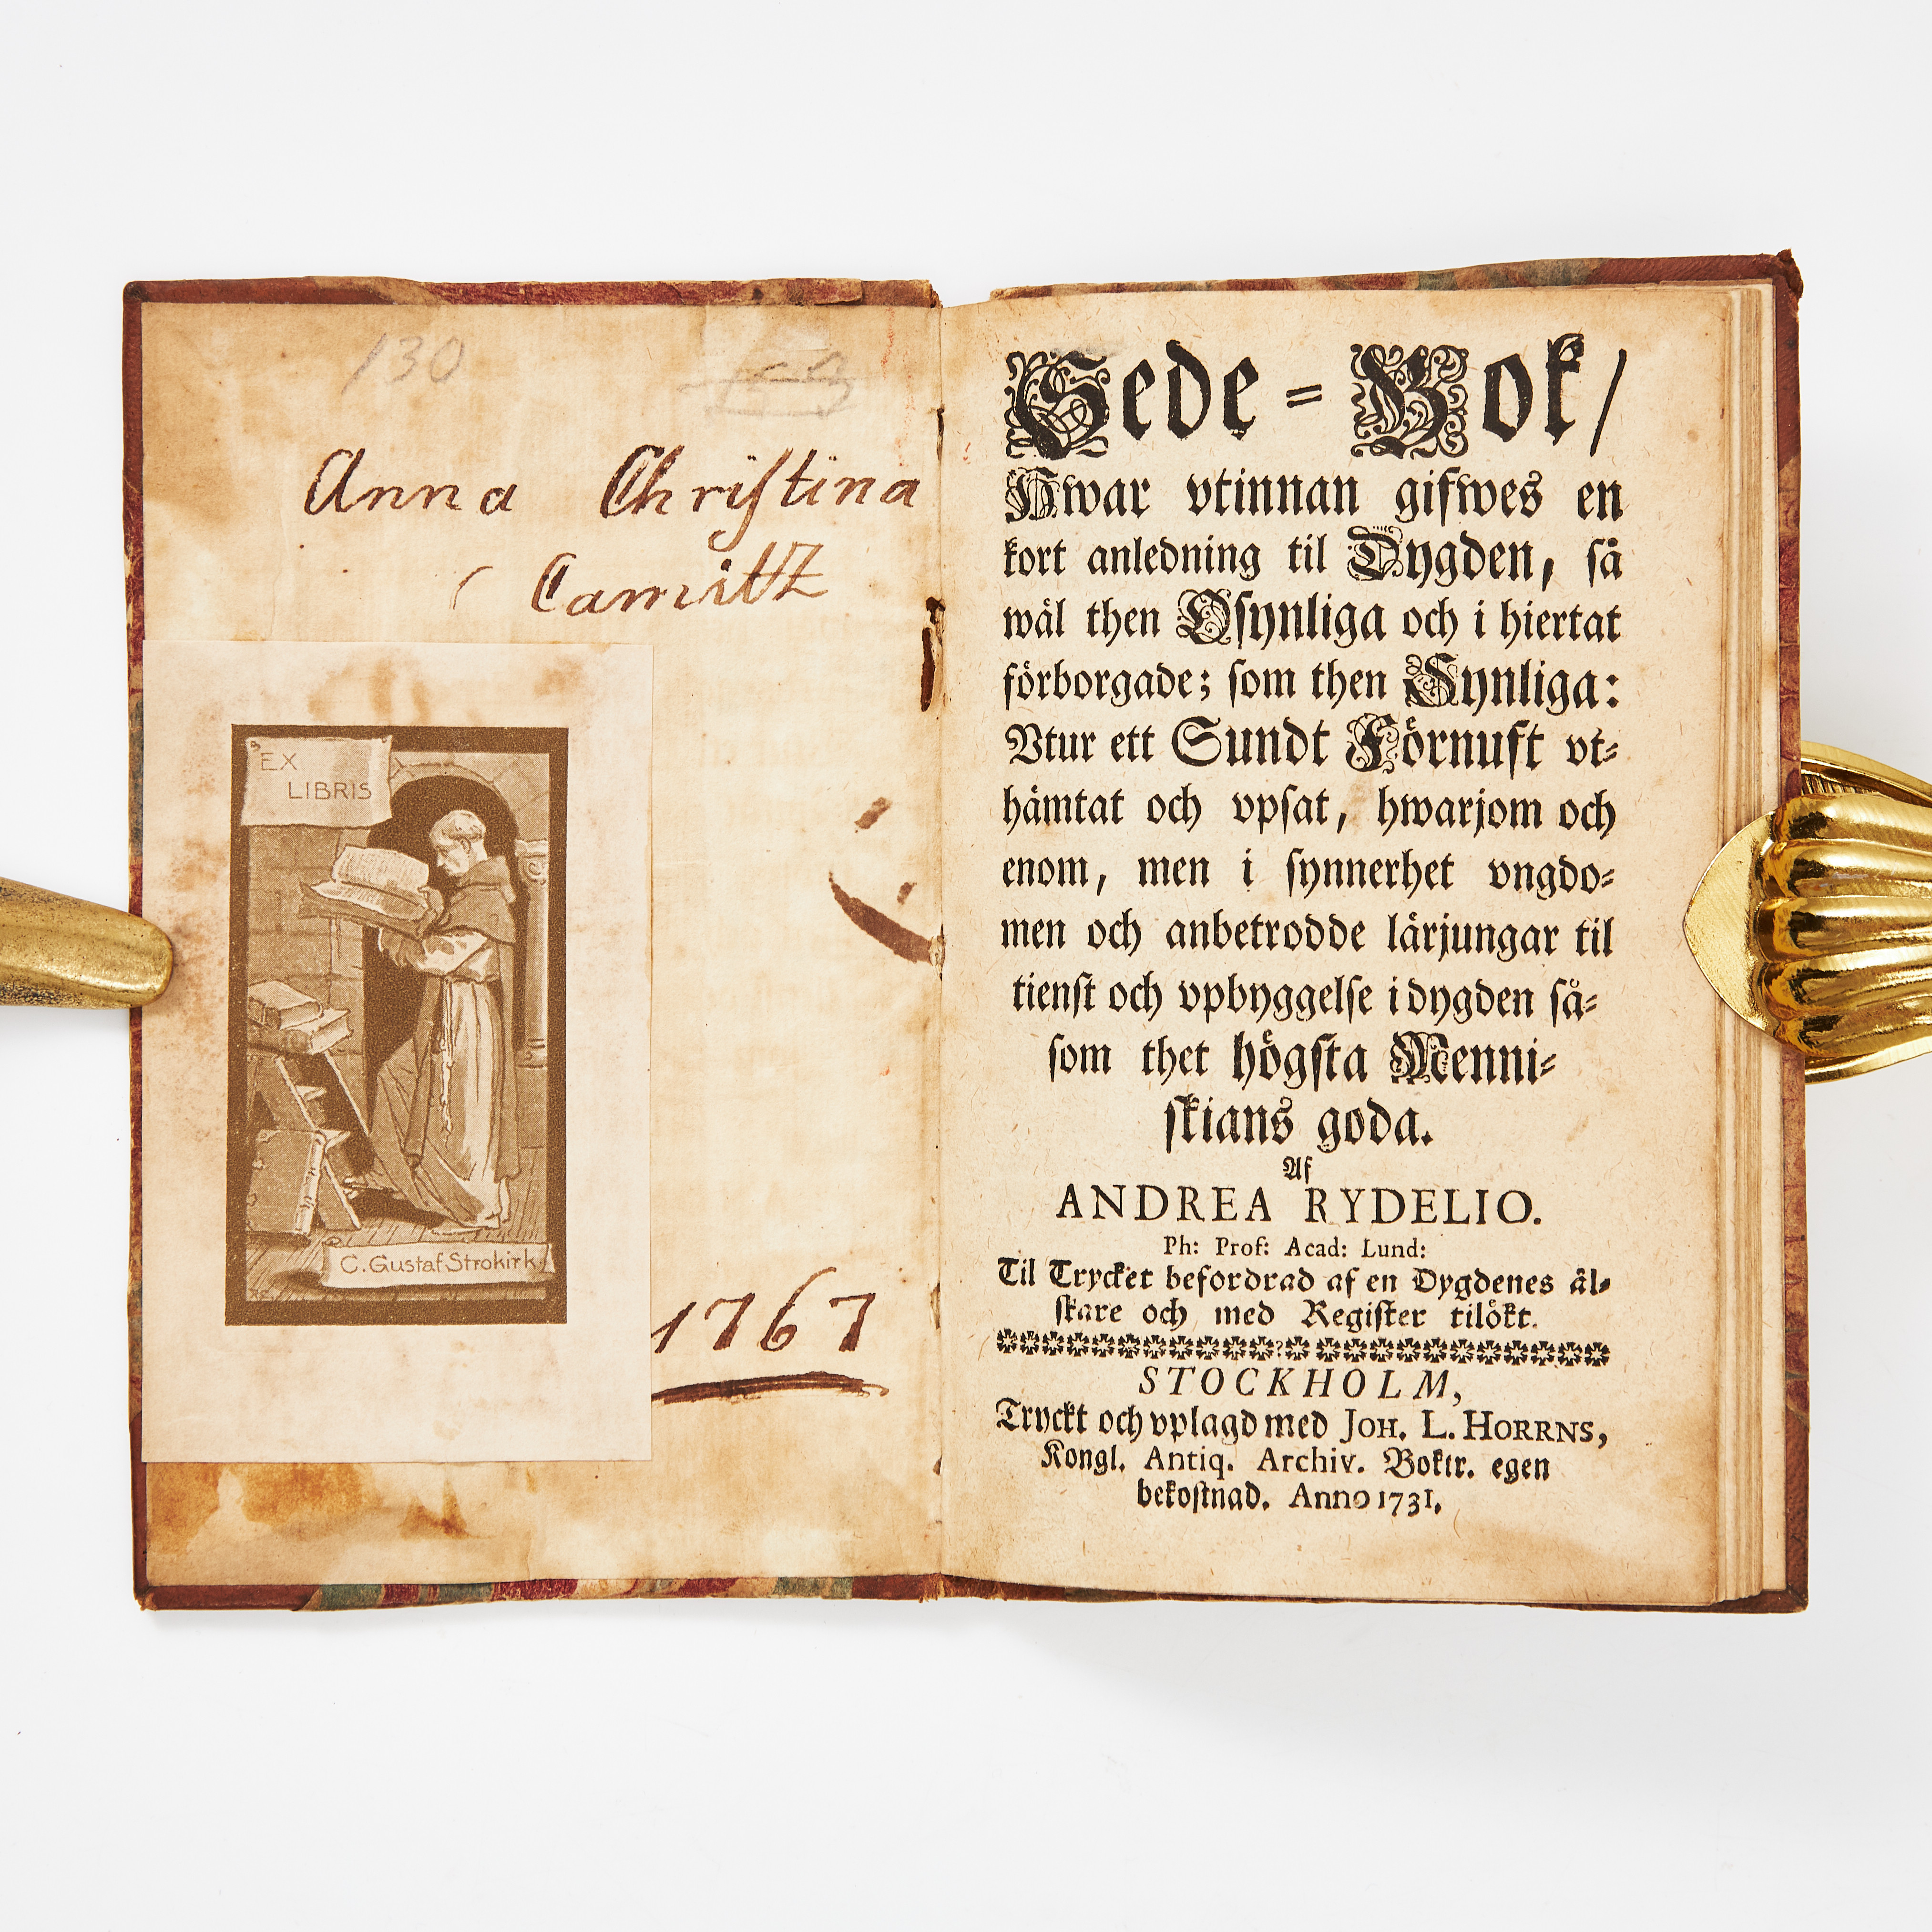 130
Anna Christina
Camitz
EX
LIBRIS
C. Gustaf Strokirk
1767
Sede=Bok/
Hwar vtinnan gifwes en
kort anledning til Dygden, så
wäl then Osynliga och i hiertat
förborgade; som then Synliga:
Vtur ett Sundt Förnuft vt=
hämtat och vpsat, hwarjom och
enom, men i synnerhet vngdo=
men och anbetrodde lärjungar til
tienst och vpbyggelse i dygden så=
som thet högsta Menni=
skians goda.
Af
ANDREA RYDELIO.
Ph: Prof: Acad: Lund:
Til Trycket befordrad af en Dygdenes äl=
skare och med Register tilökt.
STOCKHOLM,
Tryckt och vplagd med JOH. L. HORRNS,
Kongl. Antiq. Archiv. Boktr. egen
bekostnad. Anno 1731.